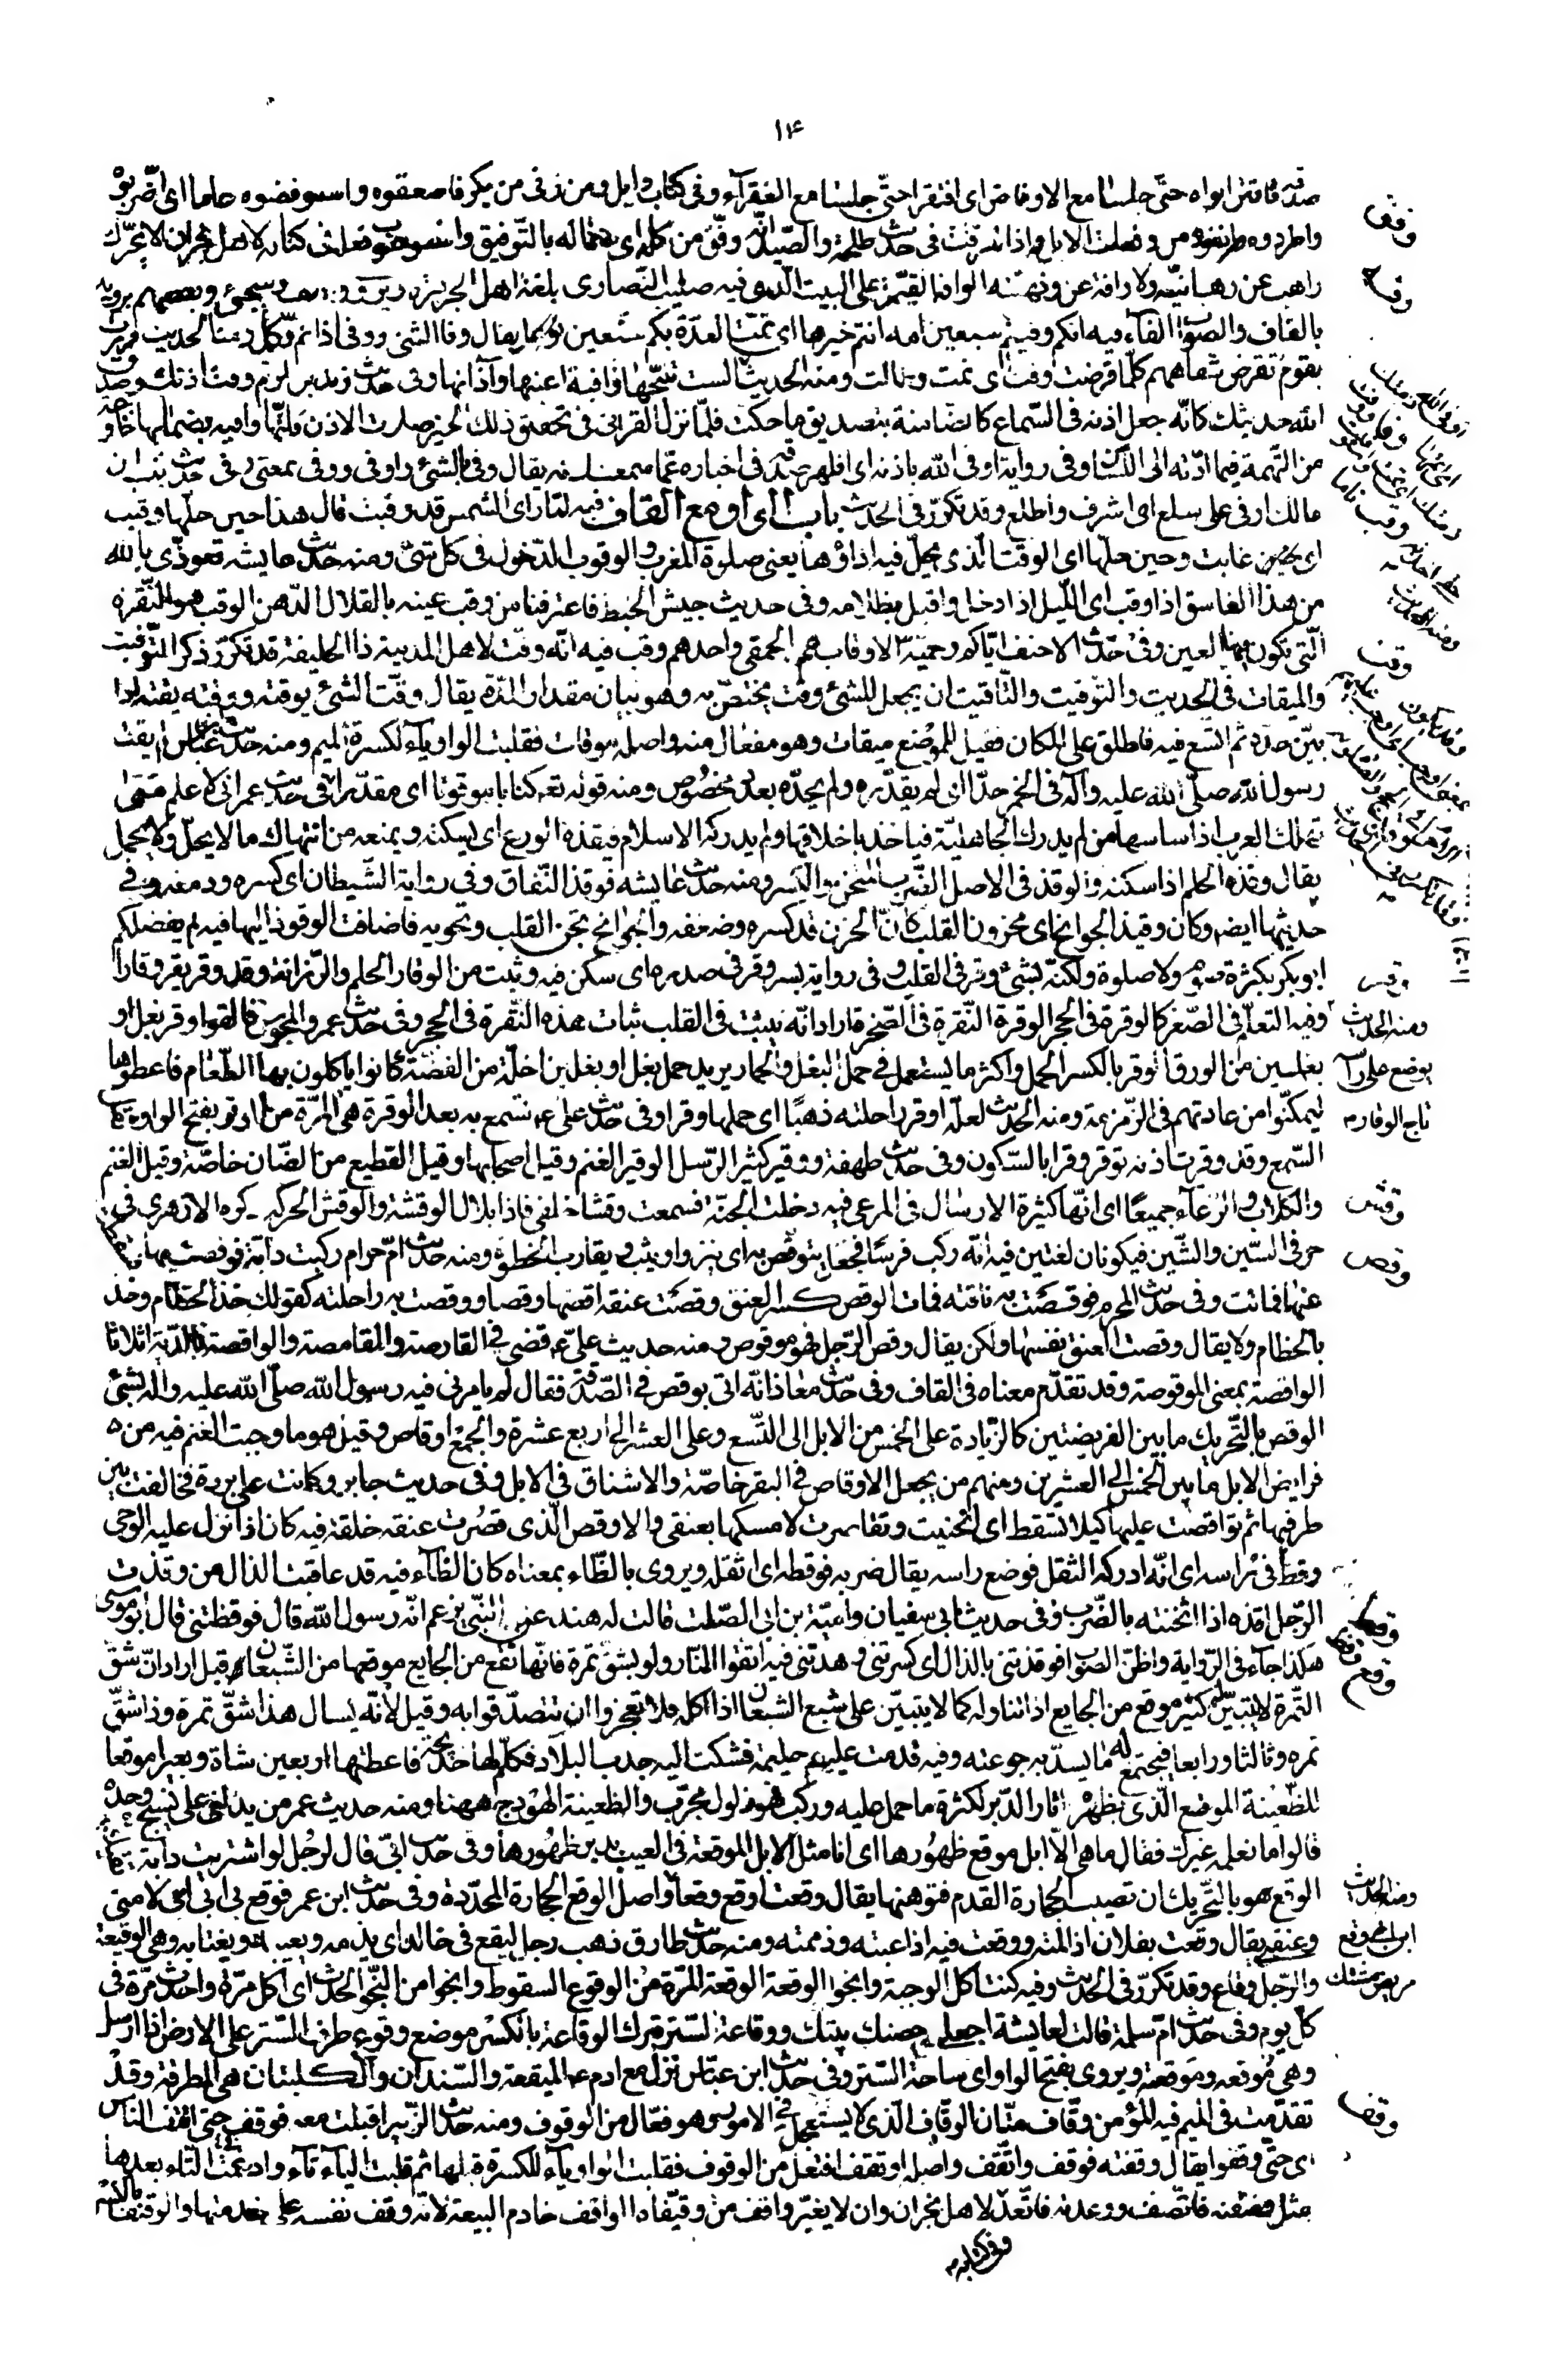 ١٤
صدقة فاقتر ابواه حتى جلسا مع الاوفاض اى افتقرا حتى جلسا مع الفقرآء وفى كتاب وايل ومن زنى من بكر فاصعقوه واستوفضوه عاما اى اضربوه
واطردوه وانفوه من وفضت الابل اذا تفرقت فى حديث طلحة والصيد انه وفق من اكله اى دعا له بالتوفيق واستصوب فعله فى كتابه لاهل نجران لا يحرك
راهب عن رهبانيته ولا وافه عن وفهيته الوافه القيم على البيت الذى فيه صليب النصارى بلغة اهل الجزيرة ويروى واهف وسيجئ وبعضهم يرويه
بالقاف والصواب الفآء فيه انكم وفيتم سبعين امه انتم خيرها اى تمت العدة بكم سبعين يقال وفا الشئ ووفى اذا تم وكمل ومنه الحديث فمررت
بقوم تقرض شفاههم كلما قرضت وفت اى تمت وطالت ومنه الحديث الست تنتجها وافية اعينها وآذانها وفى حديث زيد بن ارقم وفت اذنك وصدق
الله حديثك كانه جعل اذنه فى السماع كالضامنة بتصديق ما حكت فلما نزل القران فى تحقيق ذلك الخبر صارت الاذن كانها وافيه بضمانها خارجة
من التهمة فيما ادته الى اللسان وفى رواية اوفى الله باذنه اى اظهر صدقه فى اخباره عما سمعت اذنه يقال وفى بالشئ واوفى ووفى بمعنى وفى حديث كعب بن
مالك اوفى على سلع اى اشرف واطلع وقد تكرر فى الحديث باب الواو مع القاف فيه لما راى الشمس قد وقبت قال هذا حين حلها وقبت
اى غابت وحين حلها اى الوقت الذى يحل فيه اداؤها يعنى صلوة المغرب والوقوب الدخول فى كل شئ ومنه حديث عايشه تعوذى بالله
من هذا الغاسق اذا وقب اى الليل اذا دخل واقبل بظلامه وفى حديث جيش الخبط فاغترفنا من وقب عينه بالقلال الدهن الوقب هو النقرة
التى تكون فيها العين وفى حديث الاحنف اياكم وحمية الاوقاب هم الحمقى واحدهم وقب فيه انه وقت لاهل المدينة ذا الحليفة قد تكرر ذكر التوقيت
والميقات فى الحديث والتوقيت والتاقيت ان يجعل للشئ وقت يختص به وهو بيان مقدار المدة يقال وقت الشئ يوقته ووقته يقته اذا
بين حده ثم اتسع فيه فاطلق على المكان فقيل للموضع ميقات وهو مفعال منه واصله موقات فقلبت الواو يآء لكسرة الميم ومنه حديث ابن عباس لم يقت
رسول الله صلى الله عليه وآله فى الخمر حدا اى لم يقدره ولم يحده بعدد مخصوص ومنه قوله تعه كتابا موقوتا اى مقدرا فى حديث عمر انى لاعلم متى
تهلك العرب اذا ساسها من لم يدرك الجاهلية فياخذ باخلاقها ولم يدركه الاسلام فيقذه الورع اى يسكنه ويمنعه من انتهاك ما لا يحل ولا يجمل
يقال وقذه الحلم اذا سكنه والوقذ فى الاصل الضرب المثخن والكسر ومنه حديث عايشه فوقذ النفاق وفى رواية الشيطان اى كسره ودمغه وفى
حديثها ايضه وكان وقيذ الجوانح اى محزون القلب كان الحزن قد كسره وضعفه والجوانح تجن القلب وتحويه فاضافت الوقوذ اليها فيه لم يفضلكم
ابو بكر بكثرة صوم ولا صلوة ولكنه بشئ وقر فى القلب وفى رواية لسر وقر فى صدره اى سكن فيه وثبت من الوقار الحلم والرزانة وقد وقر يقر وقارا
وفيه التعلم فى الصغر كالوقرة فى الحجر الوقرة النقرة فى الصخرة اراد انه يثبت فى القلب ثبات هذه النقرة فى الحجر وفى حديث عمر والمجوس فالقوا وقر بغل او
بغلين من الورق الوقر بالكسر الحمل واكثر ما يستعمل فى حمل البغل والحمار يريد حمل بغل او بغلين اخلة من الفضة كانوا ياكلون بها الطعام فاعطوها
ليمكنوا من عادتهم فى الزمزمة ومنه الحديث لعله اوقر راحلته ذهبا اى حملها وقرا وفى حديث على ع تسمع به بعد الوقرة هى المرة من الوقر بفتح الواو ثقل
السمع وقد وقرت اذنه توقر وقرا بالسكون وفى حديث طهفة ووقير كثير الرسل الوقير الغنم وقيل اصحابها وقيل القطيع من الضان خاصة وقيل الغنم
والكلاب والرعآء جميعا اى انها كثيرة الارسال فى المرعى فيه دخلت الجنة فسمعت وقشا خلفى فاذا بلال الوقشة والوقش الحركة ذكره الازهرى فى
حرفى السين والشين فيكونان لغتين فيه انه ركب فرسا فجعل يتوقص به اى ينزو ويثب ويقارب الخطو ومنه حديث ام حرام ركبت دابة فوقصت بها فسقطت
عنها فماتت وفى حديث المحرم فوقصت به ناقته فمات الوقص كسر العنق وقصت عنقه اقصها وقصا ووقصت به راحلته كقولك خذ الخطام وخذ
بالخطام ولا يقال وقصت العنق نفسها ولكن يقال وقص الرجل فهو موقوص ومنه حديث على ع قضى فى القارصة والقامصة والواقصة بالدية اثلاثا
الواقصة بمعنى الموقوصة وقد تقدم معناه فى القاف وفى حديث معاذ انه اتى بوقص فى الصدقة فقال لم يامرنى فيه رسول الله صلى الله عليه واله بشئ
الوقص بالتحريك ما بين الفريضتين كالزيادة على الخمس من الابل الى التسع وعلى العشر الى اربع عشرة والجمع اوقاص وقيل هو ما وجبت الغنم فيه من
فرايض الابل ما بين الخمس الى العشرين ومنهم من يجعل الاوقاص فى البقر خاصة والاشناق فى الابل وفى حديث جابر وكانت على بردة فخالفت بين
طرفيها ثم تواقصت عليها كيلا تسقط اى انحنيت وتقاصرت لامسكها بعنقى والاوقص الذى قصرت عنقه خلقة فيه كان اذا نزل عليه الوحى
وقط فى راسه اى انه ادركه الثقل فوضع راسه يقال ضربه فوقطه اى اثقله ويروى بالظاء بمعناه كان الظآء فيه قد عاقبت الذال من وقذت
الرجل اقذه اذا اثخنته بالضرب وفى حديث ابى سفيان وامية بن ابى الصلت قالت له هند عن النبى يزعم انه رسول الله قال فوقظتنى قال ابو موسى
هكذا جآء فى الرواية واظن الصواب فوقذتنى بالذال اى كسرتنى وهدتنى فيه اتقوا النار ولو بشق تمرة فانها تقع من الجايع موقعها من الشبعان قيل اراد ان شق
التمرة لا يتبين له كثير موقع من الجايع اذا تناوله كما لا يتبين على شبع الشبعان اذا اكله فلا تعجزوا ان تتصدقوا به وقيل لانه يسال هذا شق تمرة وذا شق
تمره وثالثا ورابعا فيجتمع له ما يسد به جوعته وفيه قدمت عليه حليمة فشكت اليه جدب البلاد فكلم لها خديجة فاعطتها اربعين شاة وبعيرا موقعا
للظعينة الموقع الذى بظهره اثار الدبر لكثرة ما حمل عليه وركب فهو ذلول مجرب والظعينة الهودج ههنا ومنه حديث عمر من يدلنى على نسيج وحده
قالوا ما نعلمه غيرك فقال ما هى الا ابل موقع ظهورها اى انا مثل الابل الموقعة فى العيب بدبر ظهورها وفى حديث ابى قال لرجل لو اشتريت دابة تقيك
الوقع هو بالتحريك ان تصيب الحجارة القدم فتوهنها يقال وقعت اوقع وقعا واصل الوقع الحجارة المحددة وفى حديث ابن عمر فوقع بى ابى اى لامنى
وعنفنى يقال وقعت بفلان اذا لمته ووقعت فيه اذا عبته وذممته ومنه حديث طارق ذهب رجل ليقع فى خالد اى يذمه ويعيبه ويغتابه وهى الوقيعة
والرجل وقاع وقد تكرر فى الحديث وفيه كنت اكل الوجبة وانجو الوقعة الوقعة المرة من الوقوع السقوط وانجو من النجو الحدث اى اكل مرة واحدث مرة فى
كل يوم وفى حديث ام سلمة قالت لعايشة اجعلى حصنك بيتك ووقاعة الستر قبرك الوقاعة بالكسر موضع وقوع طرف الستر على الارض اذا ارسل
وهى موقعه وموقعته ويروى بفتح الواو اى ساحة الستر وفى حديث ابن عباس نزل مع ادم ع الميقعة والسندان والكلبتان هى المطرقة وقد
تقدمت فى الميم فيه المؤمن وقاف متان الوقاف الذى لا يستعجل فى الامور وهو فعال من الوقوف ومنه حديث الزبير اقبلت معه فوقف حتى اتقف الناس
اى حتى وقفوا يقال وقفته فوقف واتقف واصله اوتقف افتعل من الوقوف فقلبت الواو يآء للكسرة قبلها ثم قلبت اليآء تآء وادغمت التاء بعدها
مثل وصفته فاتصف ووعدته فاتعد لاهل نجران وان لا يغير واقف من وقيفاه الواقف خادم البيعة لانه وقف نفسه على خدمتها والوقيفا بالكسر
وفى كتابه
وفق
وفه
وقب
وقت
وقر
ومنه الحديث
يوضع على راسه
تاج الوقار
وقش
وقص
وقط
وقظ
وقع
ومنه الحديث
ابن اخى وقع
وقف